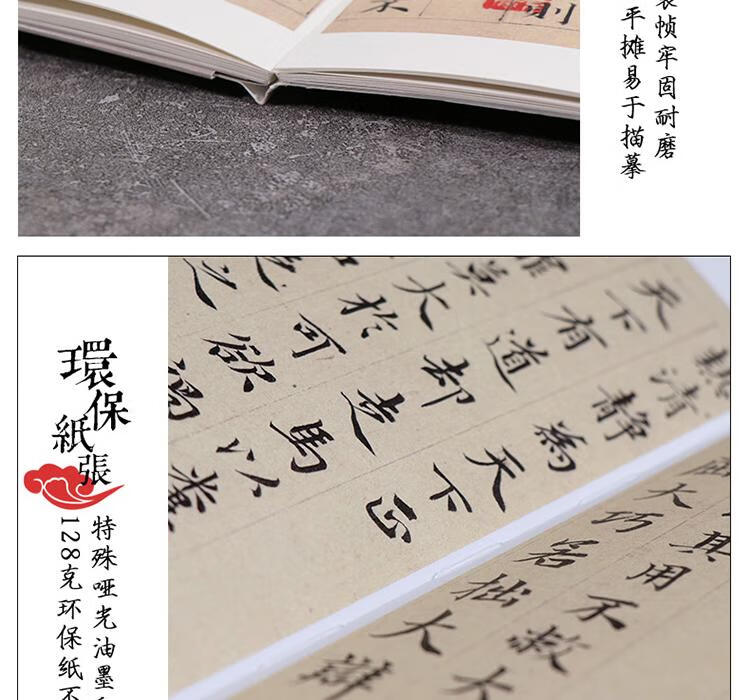 不
則
帧牢固耐磨
平摊易于描摹
環保紙張
特殊哑光油墨
128克环保纸不
熱清靜為天下正
天下有道却走馬以糞
罪莫大於可欲禍
之
其用不敝大
大巧若拙大辯